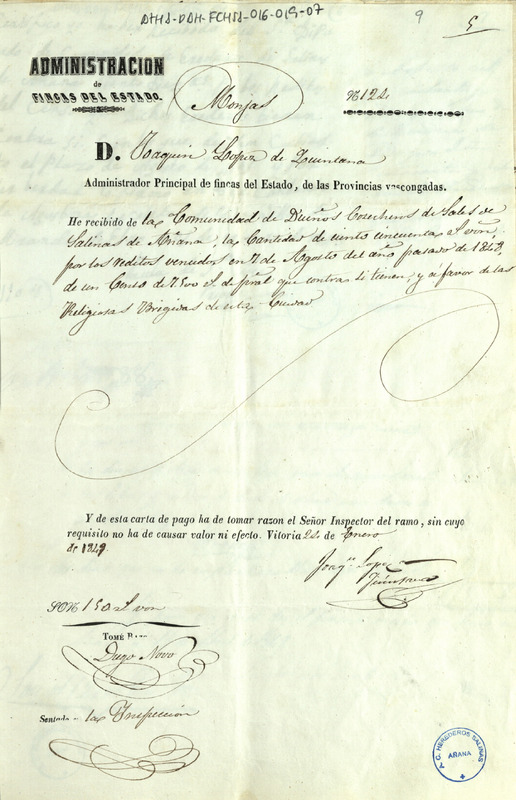 AHHS-DDH-FCHSS-016-019-07
9
5
ADMINISTRACION
de
FINCAS DEL ESTADO.
Monjas
Nº 122
D. Joaquin Lopez de Quintana
Administrador Principal de fincas del Estado, de las Provincias vascongadas.
He recibido de la Comunidad de Dueños Cosecheros de Sales de
Salinas de Añana, la Cantidad de ciento cincuenta rs. von,
por los reditos vencidos en 7 de Agosto del año pasado de 1848,
de un Censo de 7500 rs. de pral. que contra si tienen, y a favor de las
Religiosas Brigidas de esta Ciudad
Y de esta carta de pago ha de tomar razon el Señor Inspector del ramo, sin cuyo
requisito no ha de causar valor ni efecto. Vitoria 24 de Enero
de 1849.
Joaqn. Lopez
Quintana
SON 150 rs von
TOMÉ
Novo
Sentada la Inspección
A.C. HEREDEROS SALINAS
AÑANA